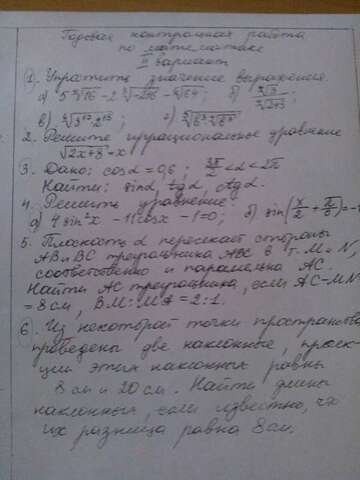 Годовая контрольная работа
по математике
II вариант
1. Упростить значение выражения
2. Решите иррациональное уравнение
√2x+8 = x
3. Дано: cosα = 0,6; 3π/2 < α < 2π
Найти: sinα, tgα, ctgα.
4. Решить уравнение:
а) 4 sin²x - 11cosx - 1 = 0; б) sin(x/2 + π/6) =
5. Плоскость α пересекает стороны
AB и BC треугольника ABC в т. M и N,
соответственно и параллельна AC.
Найти AC треугольника, если AC-MN
= 8 см, BM:MA = 2:1.
6. Из некоторой точки пространства
проведены две наклонные, проек-
ции этих наклонных равны
8 см и 20 см. Найти длины
наклонных, если известно, что
их разница равна 8 см.